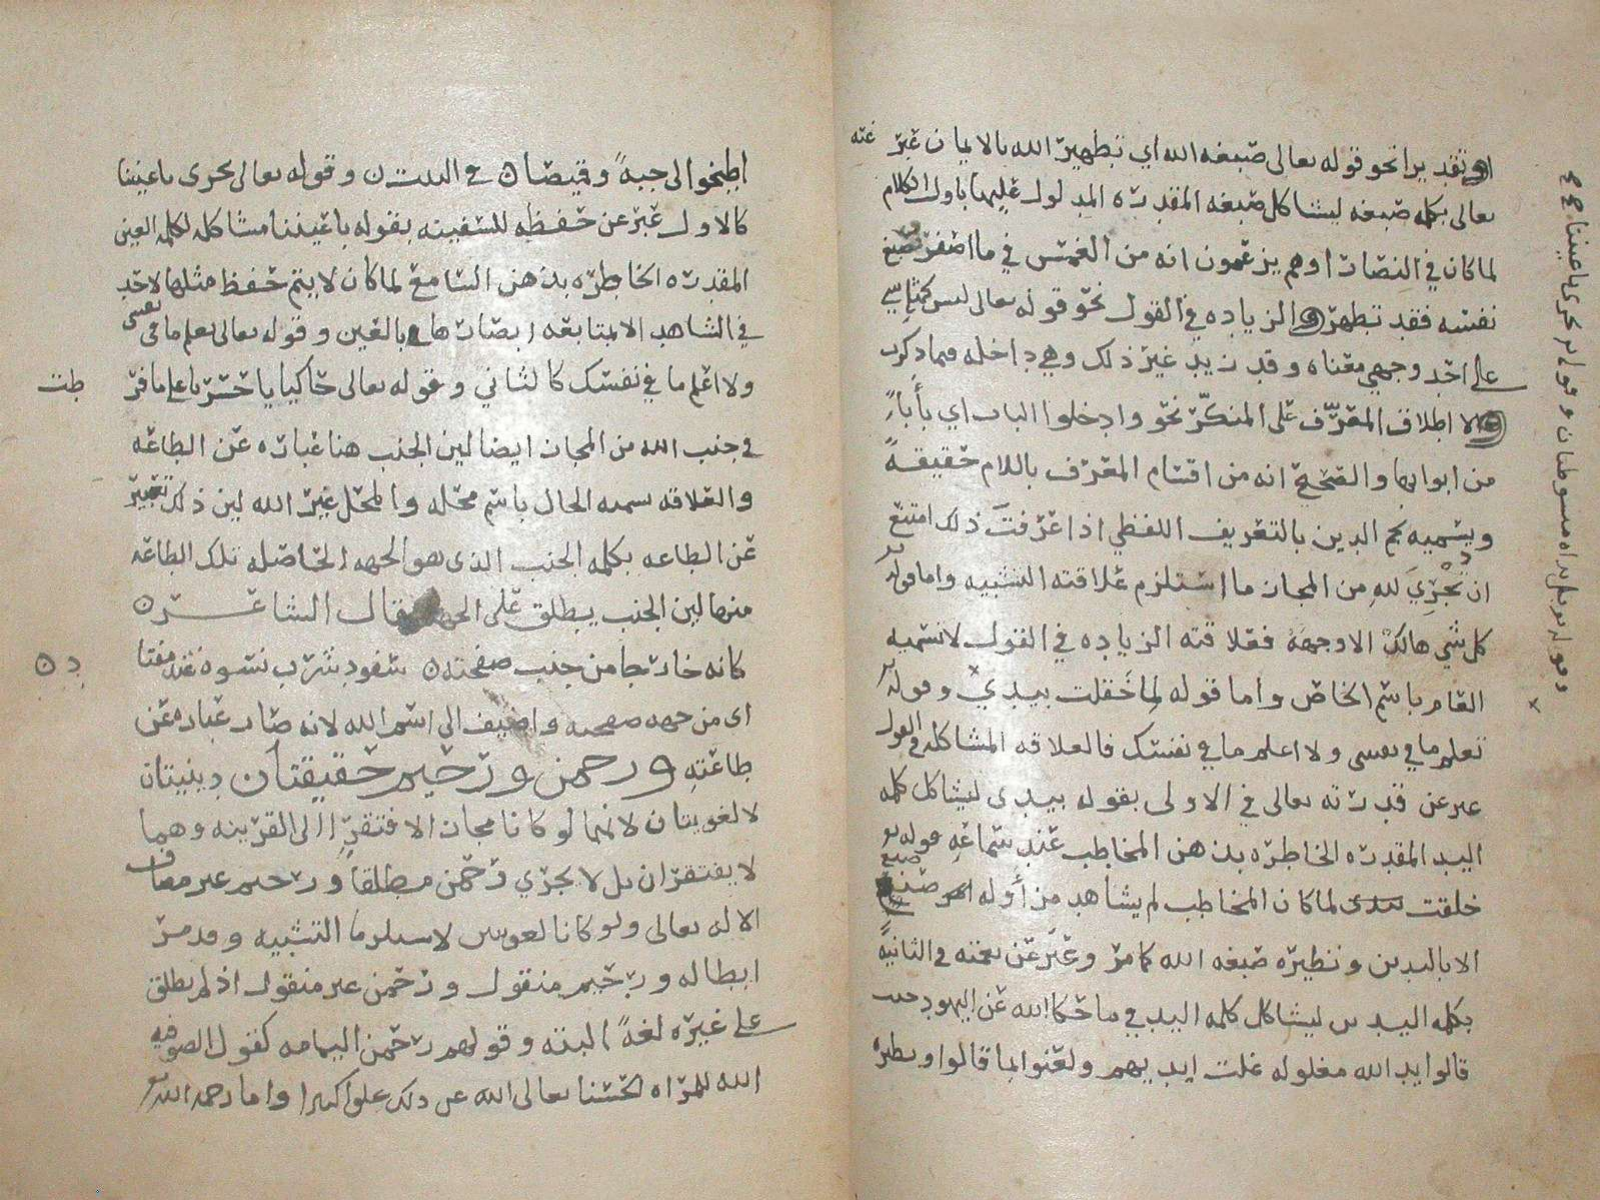 او تقديرا نحو قوله تعالى صبغه الله اي تطهير الله بالايمان عبر عنه
تعالى بكلمه صبغه ليشاكل صبغه المقدره المدلول عليها باول الكلام
لما كان في النصارا وهم يزعمون انه من انغمس في ما اصفر
نفسه فقد تطهر والزياده في القول نحو قوله تعالى ليس كمثله شي
على احد وجهي معناه وقد زيد غير ذلك وهي داخله فيما ذكرت
لا اطلاق المعرف على المنكر نحو وادخلوا الباب اي بابا
من ابوابها والصحيح انه من اقسام المعرف باللام حقيقة
ويسميه نجم الدين بالتعريف اللفظي اذا عرفت ذلك امتنع
ان تجري لله من المجاز ما استلزم علاقته التشبيه واما قوله
كل شي هالك الا وجهه فعلاقته الزياده في القول لا تسميه
العام باسم الخاص واما قوله لما خلقت بيدي وقوله
تعلم ما في نفسي ولا اعلم ما في نفسك فالعلاقه المشاكله في القول
عبر عن قدرته تعالى في الاولى بقوله بيدي ليشاكل كلمه
اليد المقدره الخاطره بذهن المخاطب عند سماعه قوله
خلقت بيدي لما كان المخاطب لم يشاهد من اوله صنع
الا باليدين ونظيره صبغه الله كما مر وعبر عن نعمته في الثانية
بكلمه اليدين ليشاكل كلمه اليد في ما حكا الله عن اليهود حيث
قالوا يد الله مغلوله غلت ايديهم ولعنوا بما قالوا ونظيره
اطبخوا لي جبة وقميصا في البيت وقوله تعالى تجري باعيننا
كالاول عبر عن حفظه للسفينه بقوله باعيننا مشاكله لكلمه العين
المقدره الخاطره بذهن السامع لما كان لا يتم حفظ مثلها لاحد
في الشاهد الا بمتابعه ابصارها بالعين وقوله تعالى تعلم ما في نفسي
ولا اعلم ما في نفسك كالثاني وقوله تعالى حاكيا يا حسرتا على ما فر
طت
في جنب الله من المجاز ايضا لين الجنب هنا عباره عن الطاعه
والعلاقه تسميه الحال باسم محله والمحل غير الله لين ذكر تعبير
عن الطاعه بكلمه الجنب الذي هو الجهه الحاصله تلك الطاعه
منها لين الجنب يطلق على الجهه قال الشاعر
كانه خارجا من جنب صفحته سفود شرب نسوه عند مفتا
د ن
اي من جهه صفحته واضيف الى اسم الله لانه صار عباره عن
طاعته ورحمن ورحيم حقيقتان دينيتان
لا لغويتان لانهما لو كانا مجازا لافتقرا الى القرينه وهما
لا يفتقران بل لا يجري رحمن مطلقا ورحيم غير مضاف
الا له تعالى ولو كانا لغويين لاستلزما التشبيه وقد مر
ابطاله ورحيم منقول ورحمن غير منقول اذ لم يطلق
على غيره لغة البته وقولهم رحمن اليمامه كقول الصوفيه
الله للمراه الحسنا تعالى الله عن ذلك علوا كبيرا واما رحمه الله